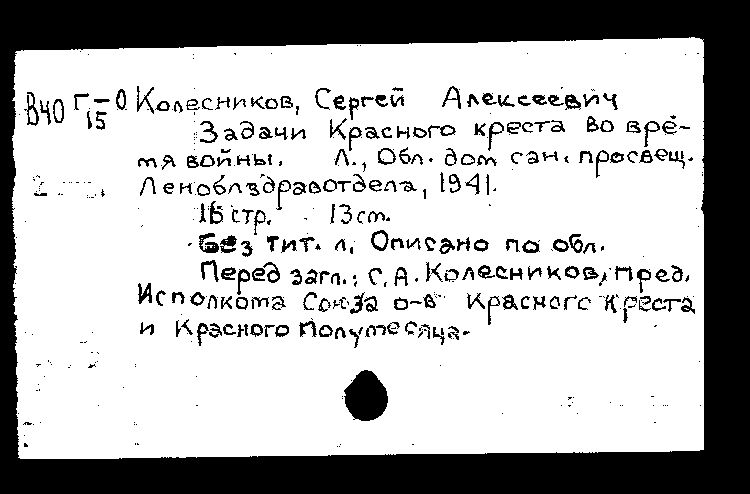 В40 Г-0 Колесников, Сергей Алексеевич
15
Задачи Красного креста во вре-
мя войны. Л., Обл. дом сан. просвещ.
Леноблздравотдела, 1941.
16 стр. 13 cm.
Без тит. л. Описано по обл.
Перед загл.: С.А. Колесников, пред.
Исполкома Союза о-в Красного креста
и Красного Полумесяца.